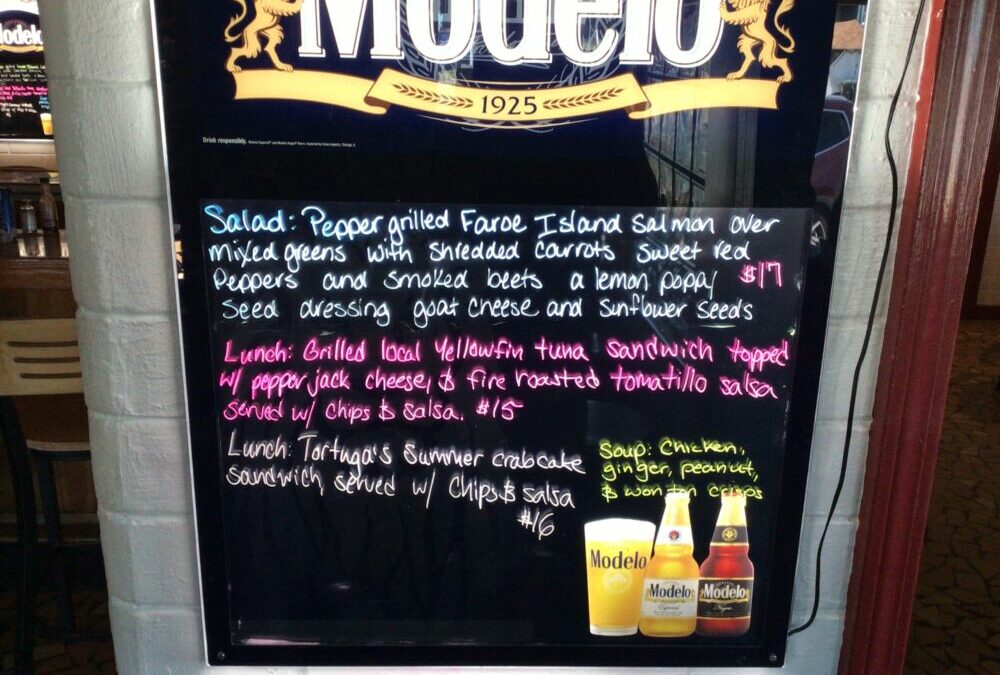 Modelo
1925
Drink responsibly.
Salad: Pepper grilled Faroe Island Salmon over
mixed greens with shredded carrots sweet red
Peppers and smoked beets a lemon poppy $17
Seed dressing goat cheese and sunflower seeds
Lunch: Grilled local Yellowfin tuna sandwich topped
w/ pepper jack cheese, & fire roasted tomatillo salsa
served w/ chips & salsa. $15
Lunch: Tortuga's Summer crabcake
sandwich, served w/ chips & salsa
$16
Soup: Chicken,
ginger, peanut,
& wonton crisps
Modelo
Modelo
Especial
Modelo
Negra